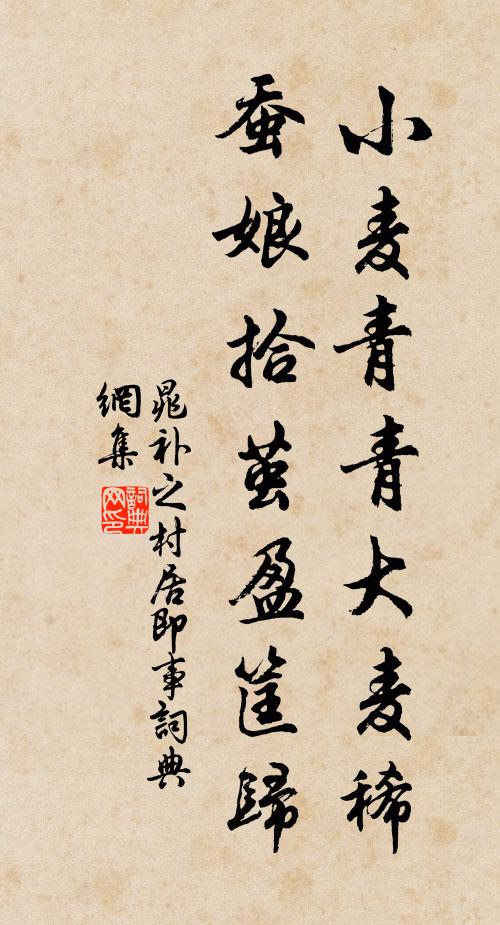 小麦青青大麦稀
蚕娘拾茧盈筐歸
晁补之村居即事詞典
網集
詞典
网印